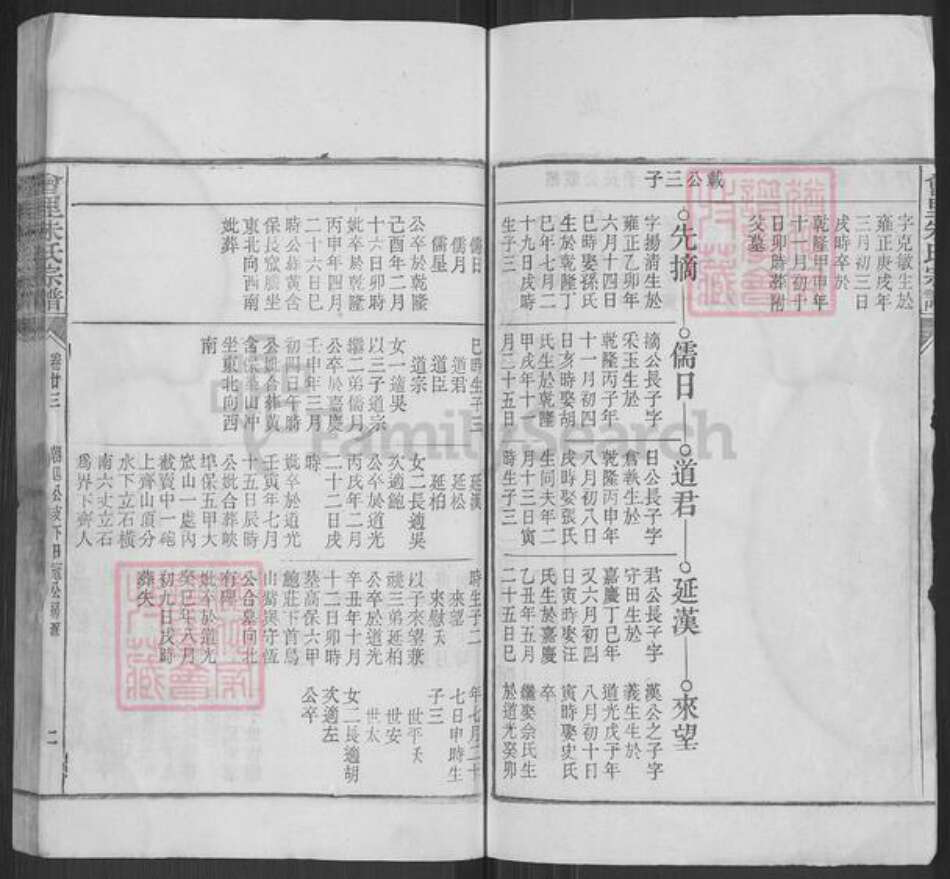 字克敏生於
雍正庚戌年
三月初三日
戌時卒於
乾隆甲申年
十一月初十
日卯時葬附
父墓
戴公三子
先摛
字揚清生於
雍正乙卯年
六月十四日
巳時娶孫氏
生於乾隆丁
巳年七月二
十九日戌時
生子三
儒日
儒月
儒星
公卒於乾隆
己酉年二月
十六日卯時
妣卒於乾隆
丙申年四月
二十六日巳
時公葬黃含
保長窊臍坐
東北向西南
妣葬
儒日
摛公長子字
采玉生於
乾隆丙子年
十一月初四
日亥時娶胡
氏生於乾隆
甲戌年十一
月二十五日
巳時生子三
道君
道臣
道宗
女一適吳
以三子道宗
繼二弟儒月
公卒於嘉慶
壬申年三月
初四日午時
公妣合葬黃
含保蓬山冲
坐東北向西
南
道君
日公長子字
牧生於
乾隆丙申年
八月初八日
戌時娶張氏
生同夫年二
月十三日寅
時生子三
延漢
延松
延柏
女二長適吳
次適鮑
公卒於道光
丙戌年二月
二十二日戌
時
妣卒於道光
壬寅年七月
十五日辰時
公妣合葬峽
埠保五甲大
窊山一處內
載賣中一砲
上齊山頂分
水下立石橫
南六丈立石
爲界下齊人
延漢
君公長子字
守田生於
嘉慶丁巳年
又六月初四
日寅時娶汪
氏生於嘉慶
乙丑年五月
二十五日巳
時生子二
來望
來慰夭
以子來望兼
祧三弟延柏
公卒於道光
辛丑年十月
十二日卯時
葬高保六甲
鮑莊下首烏
山觜與守恆
公合墓向北
有碑
妣卒於道光
癸巳年八月
初九日戌時
葬失
來望
漢公之子字
義生生於
道光戊子年
八月初十日
寅時娶史氏
卒
繼娶佘氏生
於道光癸卯
年七月二十
七日申時生
子三
世平夭
世安
世太
女二長適胡
次適左
公卒
會里朱氏宗譜
卷廿三
二
FamilySearch